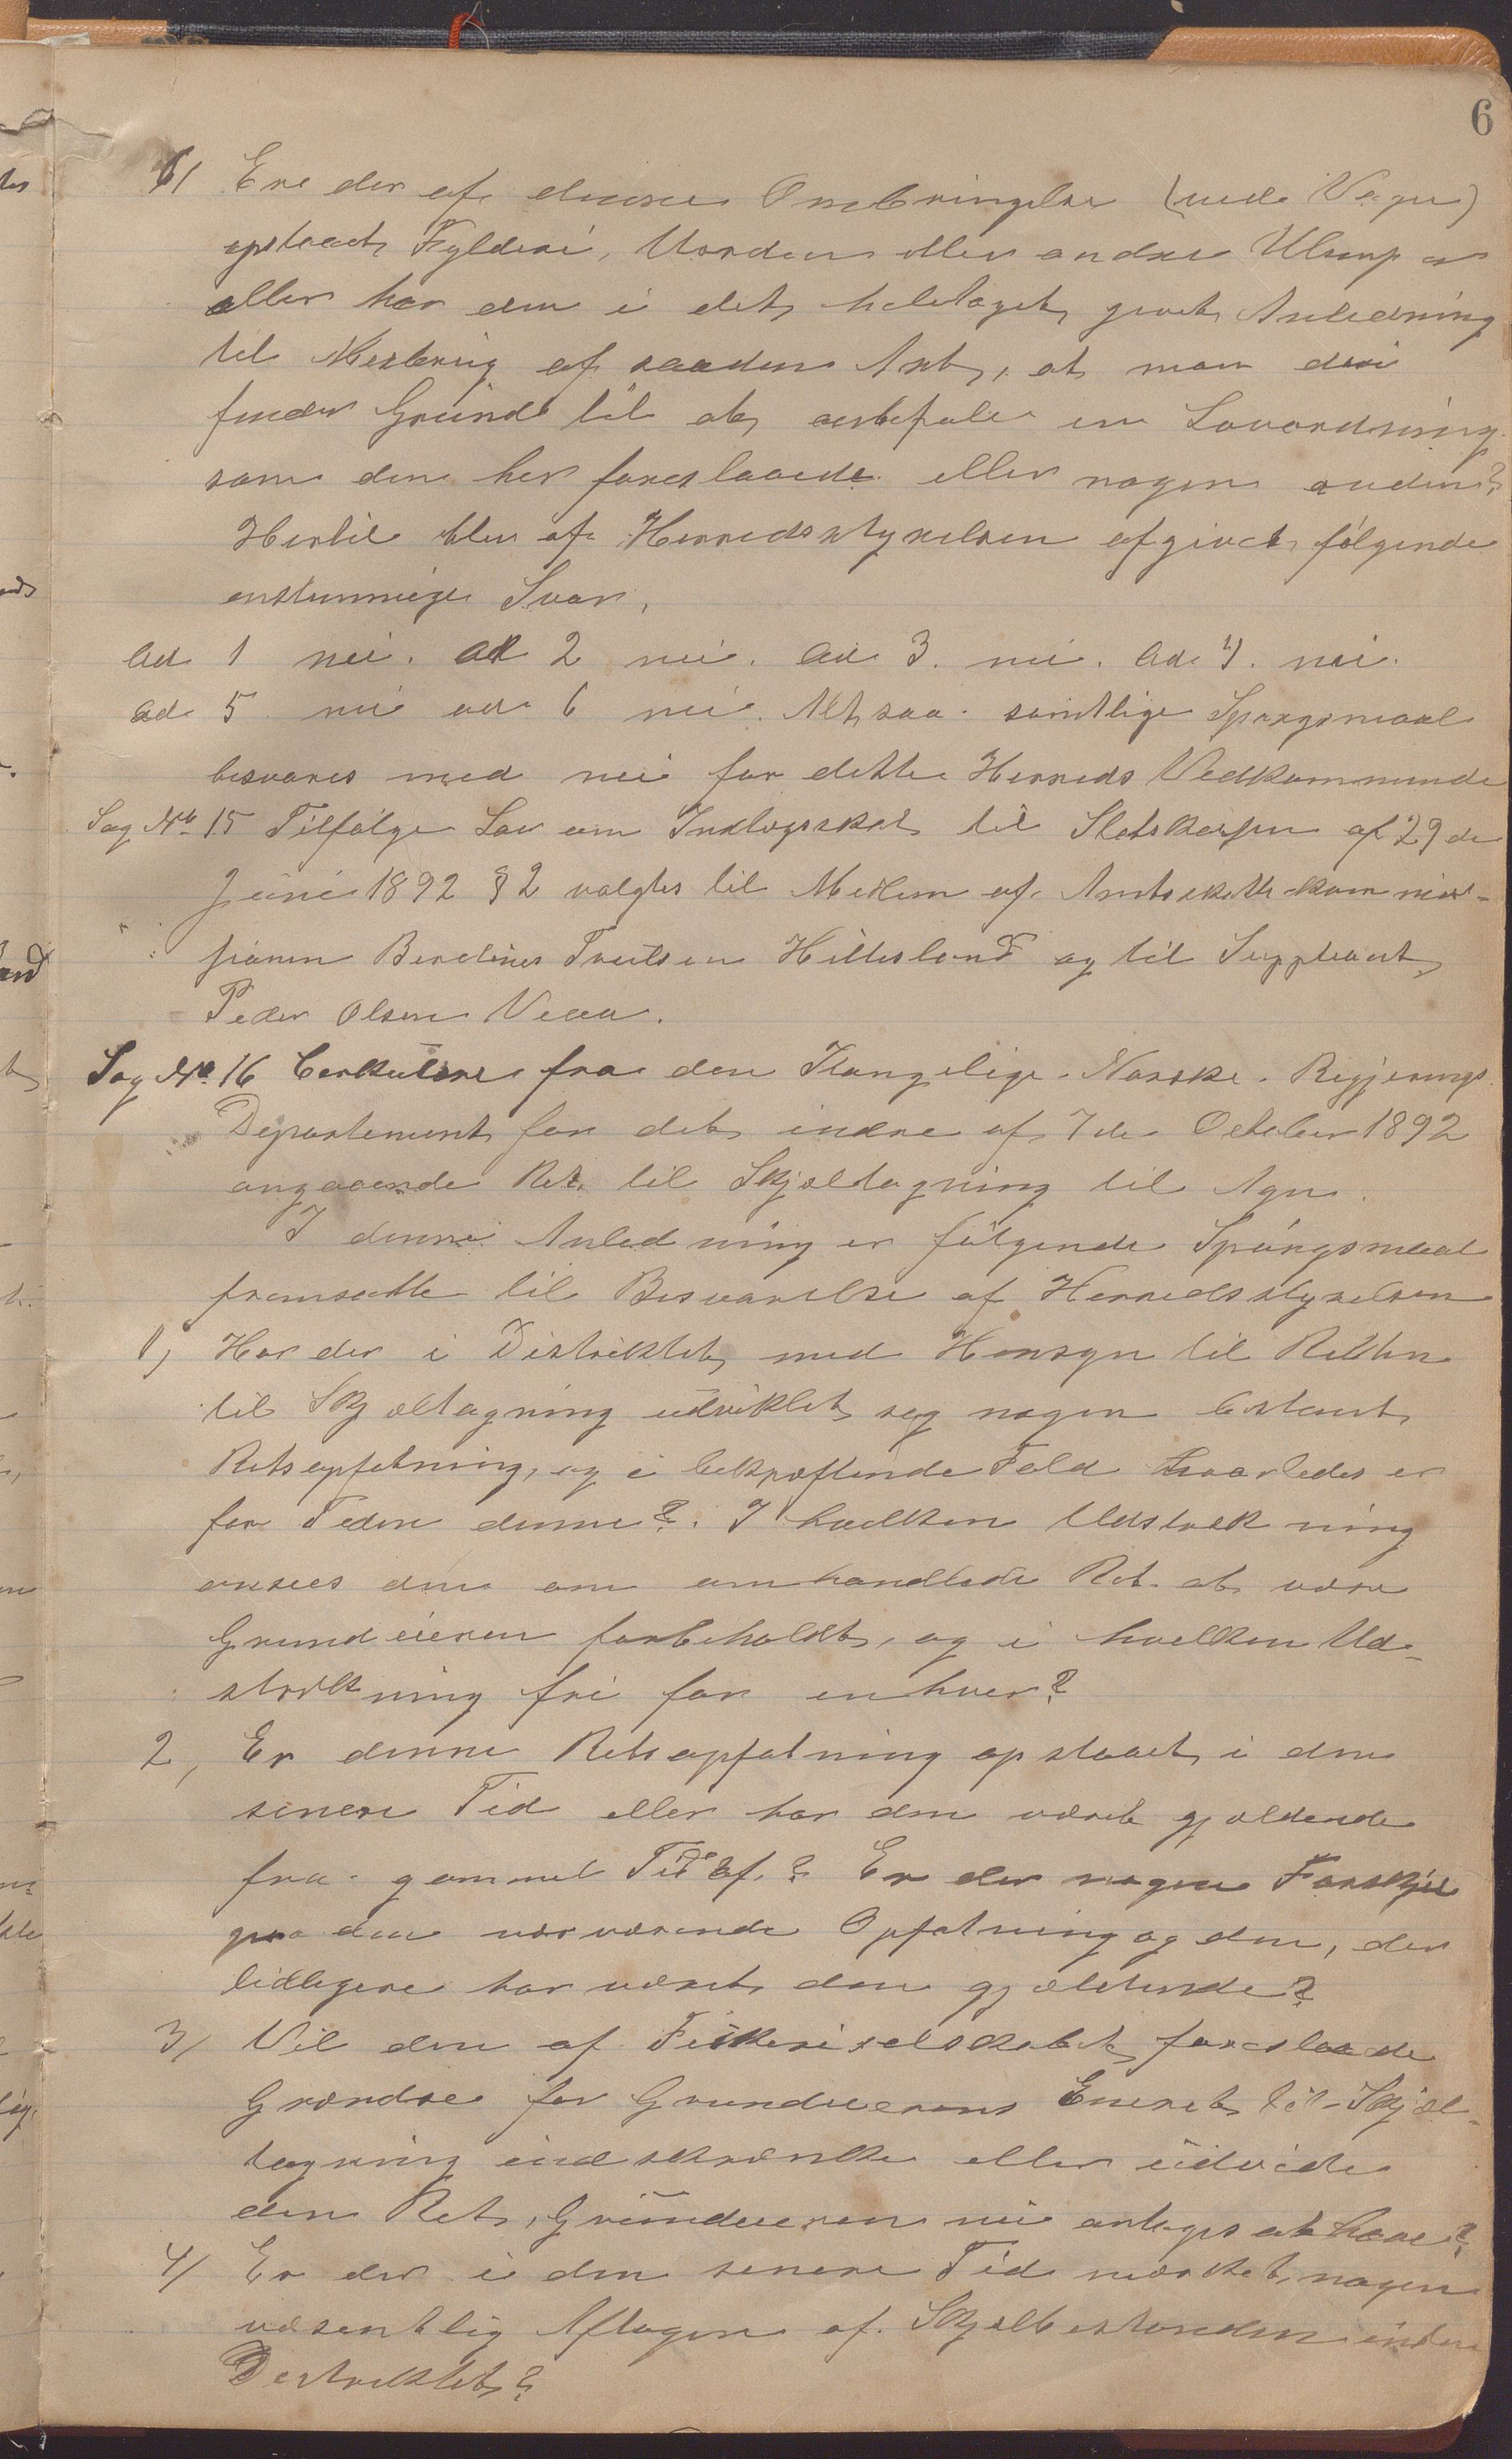 6
6/ Ere der af denne Ombringelse (med Vogn)
opstaaet Fylderi, Uorden eller andre Ulemper
eller har den i det heletaget givet Anledning
til Misbrug af saadan Art, at man deri
finder Grund til at anbefale en Lovordning
som den her foreslaaede eller nogen anden?
Hertil blev af Herredsstyrelsen afgivet følgende
enstemmige Svar,
Ad 1 nei. Ad 2 nei. Ad 3. nei. Ad 4. nei.
Ad 5 nei ad 6 nei. Altsaa samtlige Spørgsmaal
besvares med nei for dette Herreds Vedkommende
Sag No 15 Tilfølge Lov om Indtægsskat til Statskassen af 29de
Juni 1892 § 2 valgtes til Medlem af Amtsskattekommis-
sionen Berdines Truitsen Hillesland og til Suppleant
Peder Olsen Veaa.
Sag No 16 Cerkulære fra den Kongelige Norske Regjerings
Departement for det indre af 7de October 1892
angaaende Ret til Skjæltagning til Agn.
I denne Anledning er følgende Spørgsmaal
fremsatte til Besvarelse af Herredsstyrelsen
1, Har der i Distriktet med Hensyn til Retten
til Skjæltagning udviklet seg nogen bestemt
Retsopfatning, og i bekræftende Fald hvorledes er
for Tiden denne? I hvilken Udstrækning
ansees den om omhandlede Ret at være
Grundeieren forbeholdt, og i hvilken Ud-
strækning fri for enhver?
2, Er denne Retsopfatning opstaaet i den
senere Tid eller har den været gjældende
fra gammel Tid af? Er der nogen Forskjel
paa den nærværende Opfatning og den, der
tidligere har været den gjældende?
3/ Vil den af Fiskeriselskabet foreslaaede
Grændse for Grundeierens Eneret til Skjæl-
tagning indskrænke eller udvide
den Ret, Grundeieren nu antages at have?
4/ Er der i den senere Tid mærket nogen
væsentlig Aftagen af Skjælbestanden inden
Destriktet?